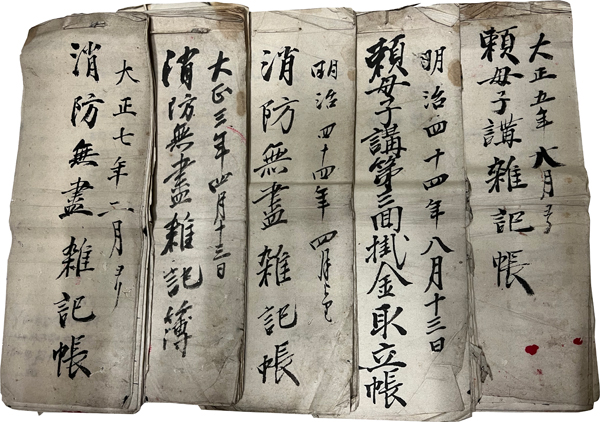 大正五年八月ヨリ
頼母子講雑記帳
明治四十四年八月十三日
頼母子講第三回掛金取立帳
明治四十四年四月
消防無盡雑記帳
大正三年四月十三日
消防無盡雑記簿
大正七年二月ヨリ
消防無盡雑記帳